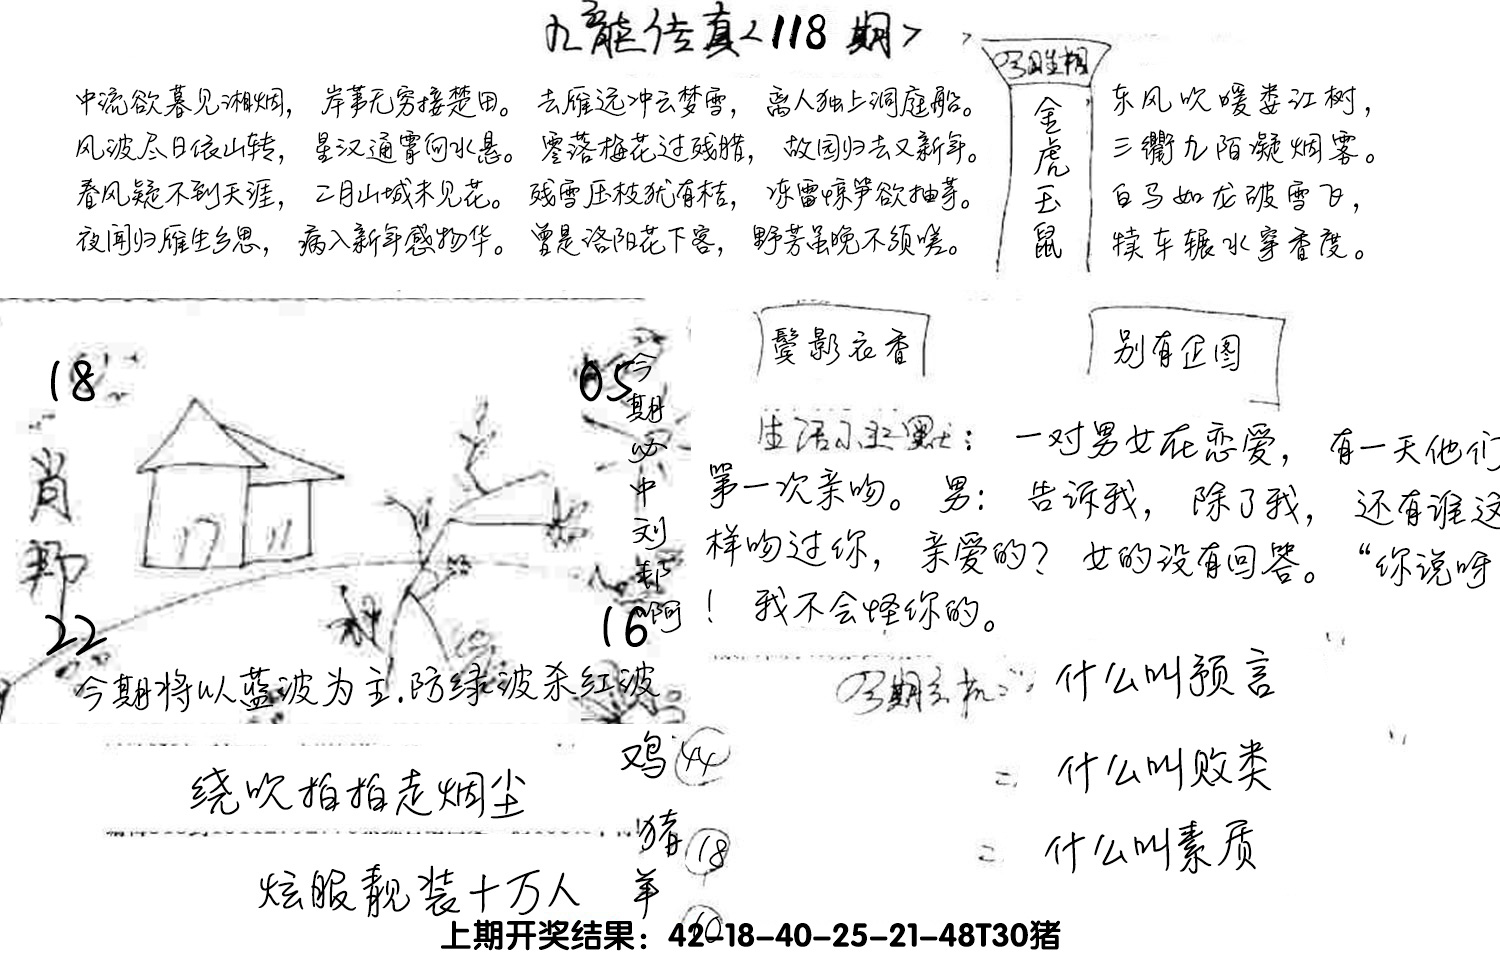 九龍传真<118期>
中流欲暮见湘烟，岸苇无穷接楚田。去雁远冲云梦雪，离人独上洞庭船。
风波尽日依山转，星汉通霄向水悬。零落梅花过残腊，故园归去又新年。
春风疑不到天涯，二月山城未见花。残雪压枝犹有桔，冻雷惊笋欲抽芽。
夜闻归雁生乡思，病入新年感物华。曾是洛阳花下客，野芳虽晚不须嗟。
金虎玉鼠
东风吹暖娄江树，
三衢九陌凝烟雾。
白马如龙破雪飞，
犊车辗水穿香度。
18
05
肖
22
16
今期必中刘邦啊
今期将以蓝波为主.防绿波杀红波
鬓影衣香
别有企图
生活小幽默：一对男女在恋爱，有一天他们
第一次亲吻。男：告诉我，除了我，还有谁这
样吻过你，亲爱的？女的没有回答。“你说呀
！我不会怪你的。
什么叫预言
= 什么叫败类
= 什么叫素质
鸡 44
猪 18
羊 10
绕吹拍拍走烟尘
炫服靓装十万人
上期开奖结果：42-18-40-25-21-48T30猪